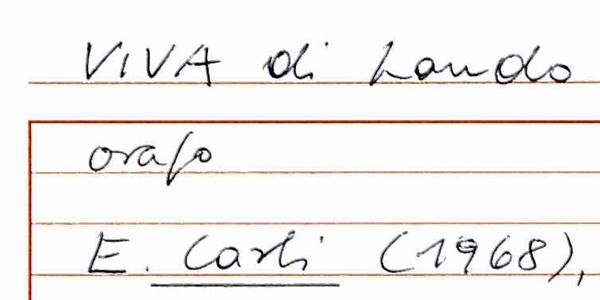 VIVA di Lando
orafo
E. Carli (1968),